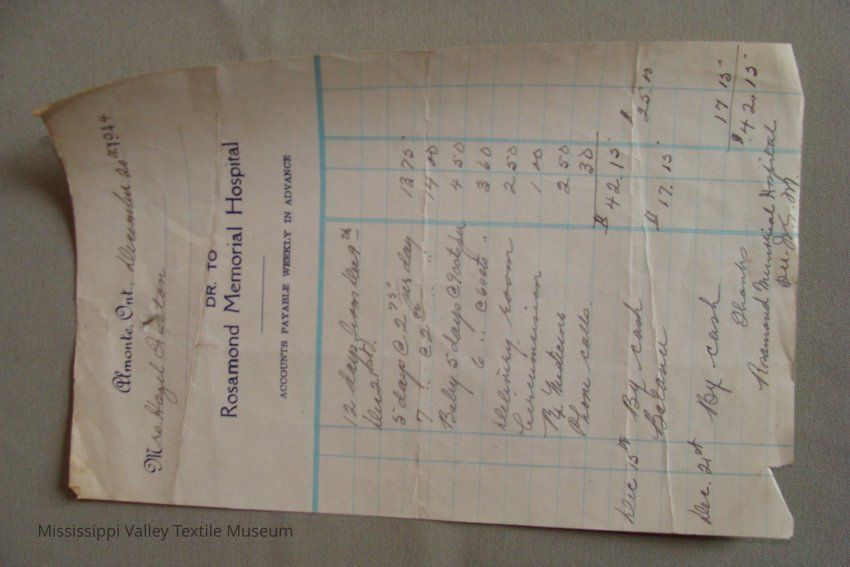 Almonte, Ont., December 21st 1944
Mrs Hazel
DR. TO
Rosamond Memorial Hospital
ACCOUNTS PAYABLE WEEKLY IN ADVANCE
12 days from Dec 9th
5 days @ 2 75 per day 13 75
7 " @ 2 00 " " 14 00
Baby 5 days @ 90cts per 4 50
6 " @ 60cts " 3 60
Delivery room 2 50
Circumcision 1 00
Medicine 2 50
Phone calls. 30
$ 42.15
Dec 15th By cash $ 25 00
Balance $ 17.15
Dec. 21st By cash 17 15
$ 42.15
Thanks
Rosamond Memorial Hospital
Mississippi Valley Textile Museum